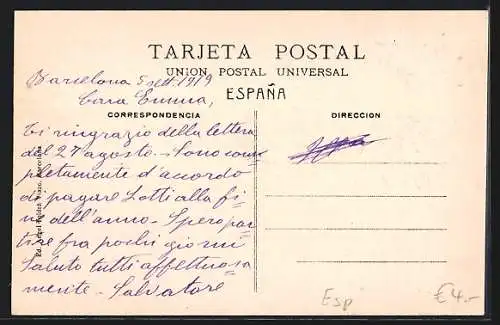 TARJETA POSTAL
UNION POSTAL UNIVERSAL
ESPAÑA
CORRESPONDENCIA
DIRECCION
Barcelona 5 sett. 1919
Cara Emma,
Ti ringrazio della lettera
del 27 agosto. - Sono com=
pletamente d'accordo
di pagare Lotti alla fi=
ne dell'anno. - Spero par=
tire fra pochi giorni
Saluto tutti affettuosa=
mente - Salvatore
Esp
€4.-